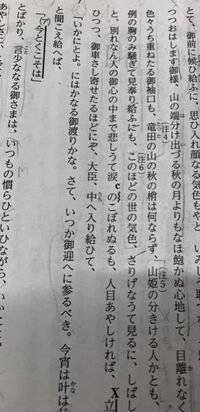 て、御前に候ひ給ふに、思ひ入れ顔なる気色もやと
つつおはします御様、山の端分け出づる秋の月よりもなほ飽かぬ心地して、目離れなく
(注4)
色々うち重ねたる御袖口も、竜田の山の秋の梢は何ならず、山姫の分きける人かとも、
(注5)
例の胸のみ騒ぎて見奉り給ふにも、このほどの世の気色、さりげなうて見るに、しばし
と、別れなん人の御心の中まで悲しうて涙cのこぼれぬるも、人目あやしければ、X立
ひつつ、御車さし寄せたるほどにぞ、大臣、中へ入り給ひて、
「いかにとよ。にはかなる御渡りかな。さて、いつか御迎へに参るべき。今宵は叶は
と聞こえ給へば、
「今とくこそは」
とばかり、言少ななる御さまは、いつもの慣らひといひながら、いか